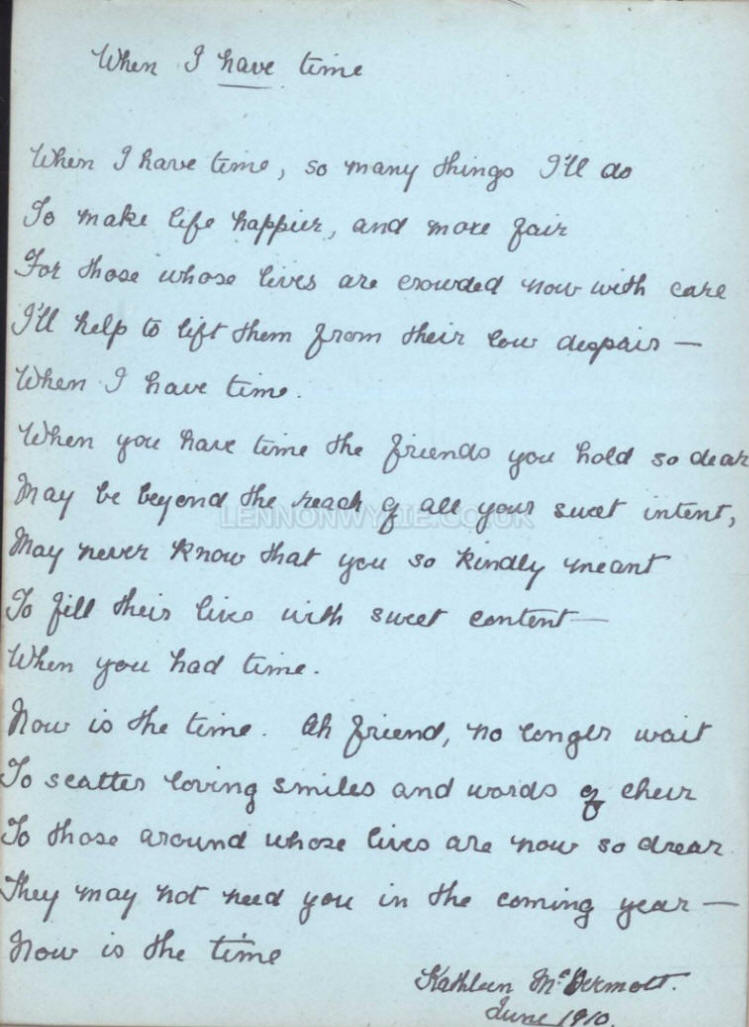 When I have time
When I have time, so many things I'll do
To make life happier, and more fair
For those whose lives are crowded now with care
I'll help to lift them from their low despair —
When I have time.
When you have time the friends you hold so dear
May be beyond the reach of all your sweet intent,
LENNONWYLIE.CO.UK
May never know that you so kindly meant
To fill their lives with sweet content —
When you had time.
Now is the time. Ah friend, no longer wait
To scatter loving smiles and words of cheer
To those around whose lives are now so drear
They may not need you in the coming year —
Now is the time
Kathleen McDermott.
June 1910.